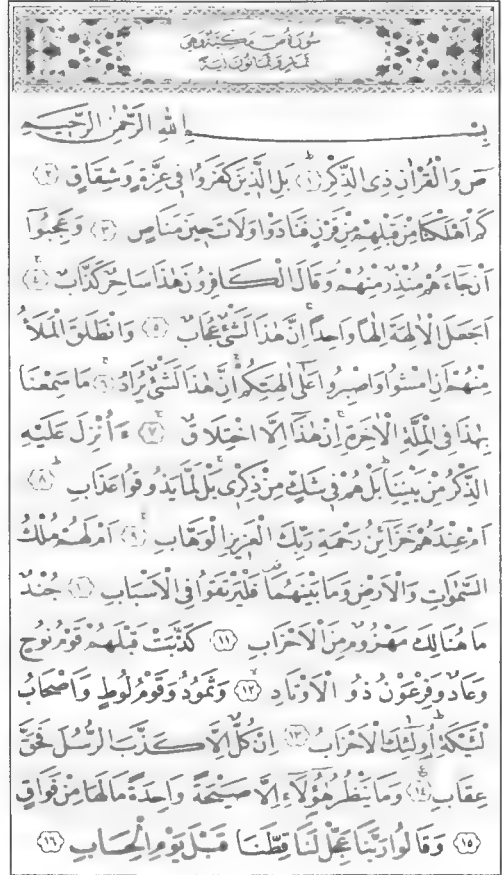 سُورَةُ صٓ مَكِّيَّةٌ وَهِيَ
ثَمَانٍ وَثَمَانُونَ اٰيَةً
بِسْــــــــــــــــمِ اللّٰهِ الرَّحْمٰنِ الرَّحٖيمِ
صٓ وَالْقُرْاٰنِ ذِي الذِّكْرِۜ ﴿١﴾ بَلِ الَّذٖينَ كَفَرُوا فٖي عِزَّةٍ وَشِقَاقٍ ﴿٢﴾
كَمْ اَهْلَكْنَا مِنْ قَبْلِهِمْ مِنْ قَرْنٍ فَنَادَوْا وَلَاتَ حٖينَ مَنَاصٍ ﴿٣﴾ وَعَجِبُٓوا
اَنْ جَٓاءَهُمْ مُنْذِرٌ مِنْهُمْ وَقَالَ الْكَافِرُونَ هٰذَا سَاحِرٌ كَذَّابٌۚ ﴿٤﴾
اَجَعَلَ الْاٰلِهَةَ اِلٰهًا وَاحِدًاۚ اِنَّ هٰذَا لَشَيْءٌ عُجَابٌ ﴿٥﴾ وَانْطَلَقَ الْمَلَأُ
مِنْهُمْ اَنِ امْشُوا وَاصْبِرُوا عَلٰٓى اٰلِهَتِكُمْۚ اِنَّ هٰذَا لَشَيْءٌ يُرَادُۚ ﴿٦﴾ مَا سَمِعْنَا
بِهٰذَا فِي الْمِلَّةِ الْاٰخِرَةِۚ اِنْ هٰذَٓا اِلَّا اخْتِلَاقٌۚ ﴿٧﴾ ءَاُنْزِلَ عَلَيْهِ
الذِّكْرُ مِنْ بَيْنِنَاۜ بَلْ هُمْ فٖي شَكٍّ مِنْ ذِكْرٖيۚ بَلْ لَمَّا يَذُوقُوا عَذَابِۜ ﴿٨﴾
اَمْ عِنْدَهُمْ خَزَٓائِنُ رَحْمَةِ رَبِّكَ الْعَزٖيزِ الْوَهَّابِۚ ﴿٩﴾ اَمْ لَهُمْ مُلْكُ
السَّمٰوَاتِ وَالْاَرْضِ وَمَا بَيْنَهُمَا۠ فَلْيَرْتَقُوا فِي الْاَسْبَابِ ﴿١٠﴾ جُنْدٌ
مَا هُنَالِكَ مَهْزُومٌ مِنَ الْاَحْزَابِ ﴿١١﴾ كَذَّبَتْ قَبْلَهُمْ قَوْمُ نُوحٍ
وَعَادٌ وَفِرْعَوْنُ ذُو الْاَوْتَادِۙ ﴿١٢﴾ وَثَمُودُ وَقَوْمُ لُوطٍ وَاَصْحَابُ
لْـَٔيْكَةِۜ اُو۬لٰٓئِكَ الْاَحْزَابُ ﴿١٣﴾ اِنْ كُلٌّ اِلَّا كَذَّبَ الرُّسُلَ فَحَقَّ
عِقَابِ۟ ﴿١٤﴾ وَمَا يَنْظُرُ هٰٓؤُ۬لَٓاءِ اِلَّا صَيْحَةً وَاحِدَةً مَا لَهَا مِنْ فَوَاقٍ
﴿١٥﴾ وَقَالُوا رَبَّنَا عَجِّلْ لَنَا قِطَّنَا قَبْلَ يَوْمِ الْحِسَابِ ﴿١٦﴾